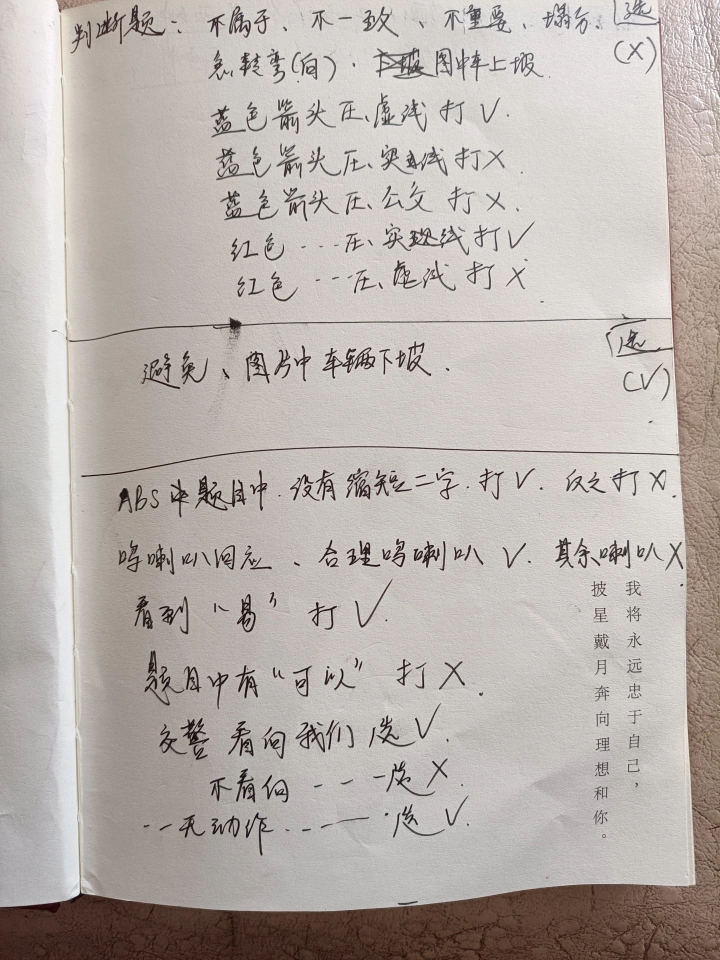 判断题: 不属于、不一致、不重要、塌方、选
急转弯(向)、图中车上坡 (X)
蓝色箭头压、虚线打V.
蓝色箭头压、实线打X
蓝色箭头压、公交打X.
红色...压、实线打V
红色...压、虚线打X
避免、图片中车辆下坡. 选 (V)
ABS 题目中.没有缩短二字.打V. 反之打X.
鸣喇叭回应、合理鸣喇叭V. 其余喇叭X
看到“易”打V.
题目中有“可以”打X.
交警看向我们选V.
不看向---选X.
--无动作.---选V.
我将永远忠于自己,
披星戴月奔向理想和你。